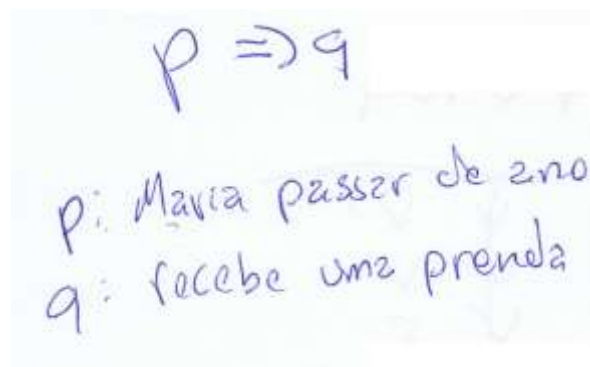 p => q
p: Maria passar de ano
q: recebe uma prenda